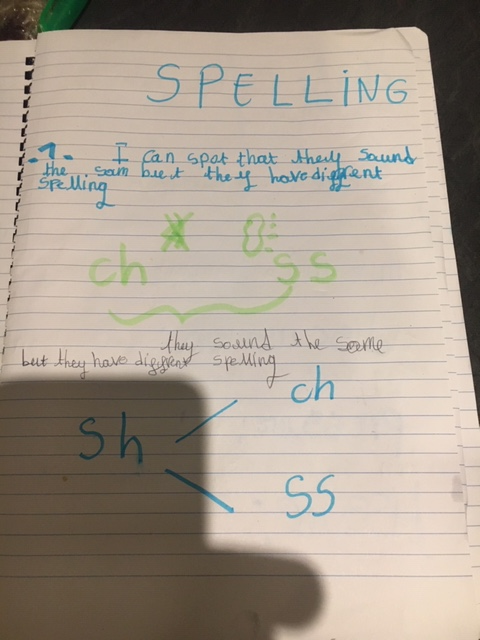 SPELLING
.1. I can spot that they sound
the sam but they have different
spelling
ch ss
they sound the same
but they have different spelling
ch
Sh
SS